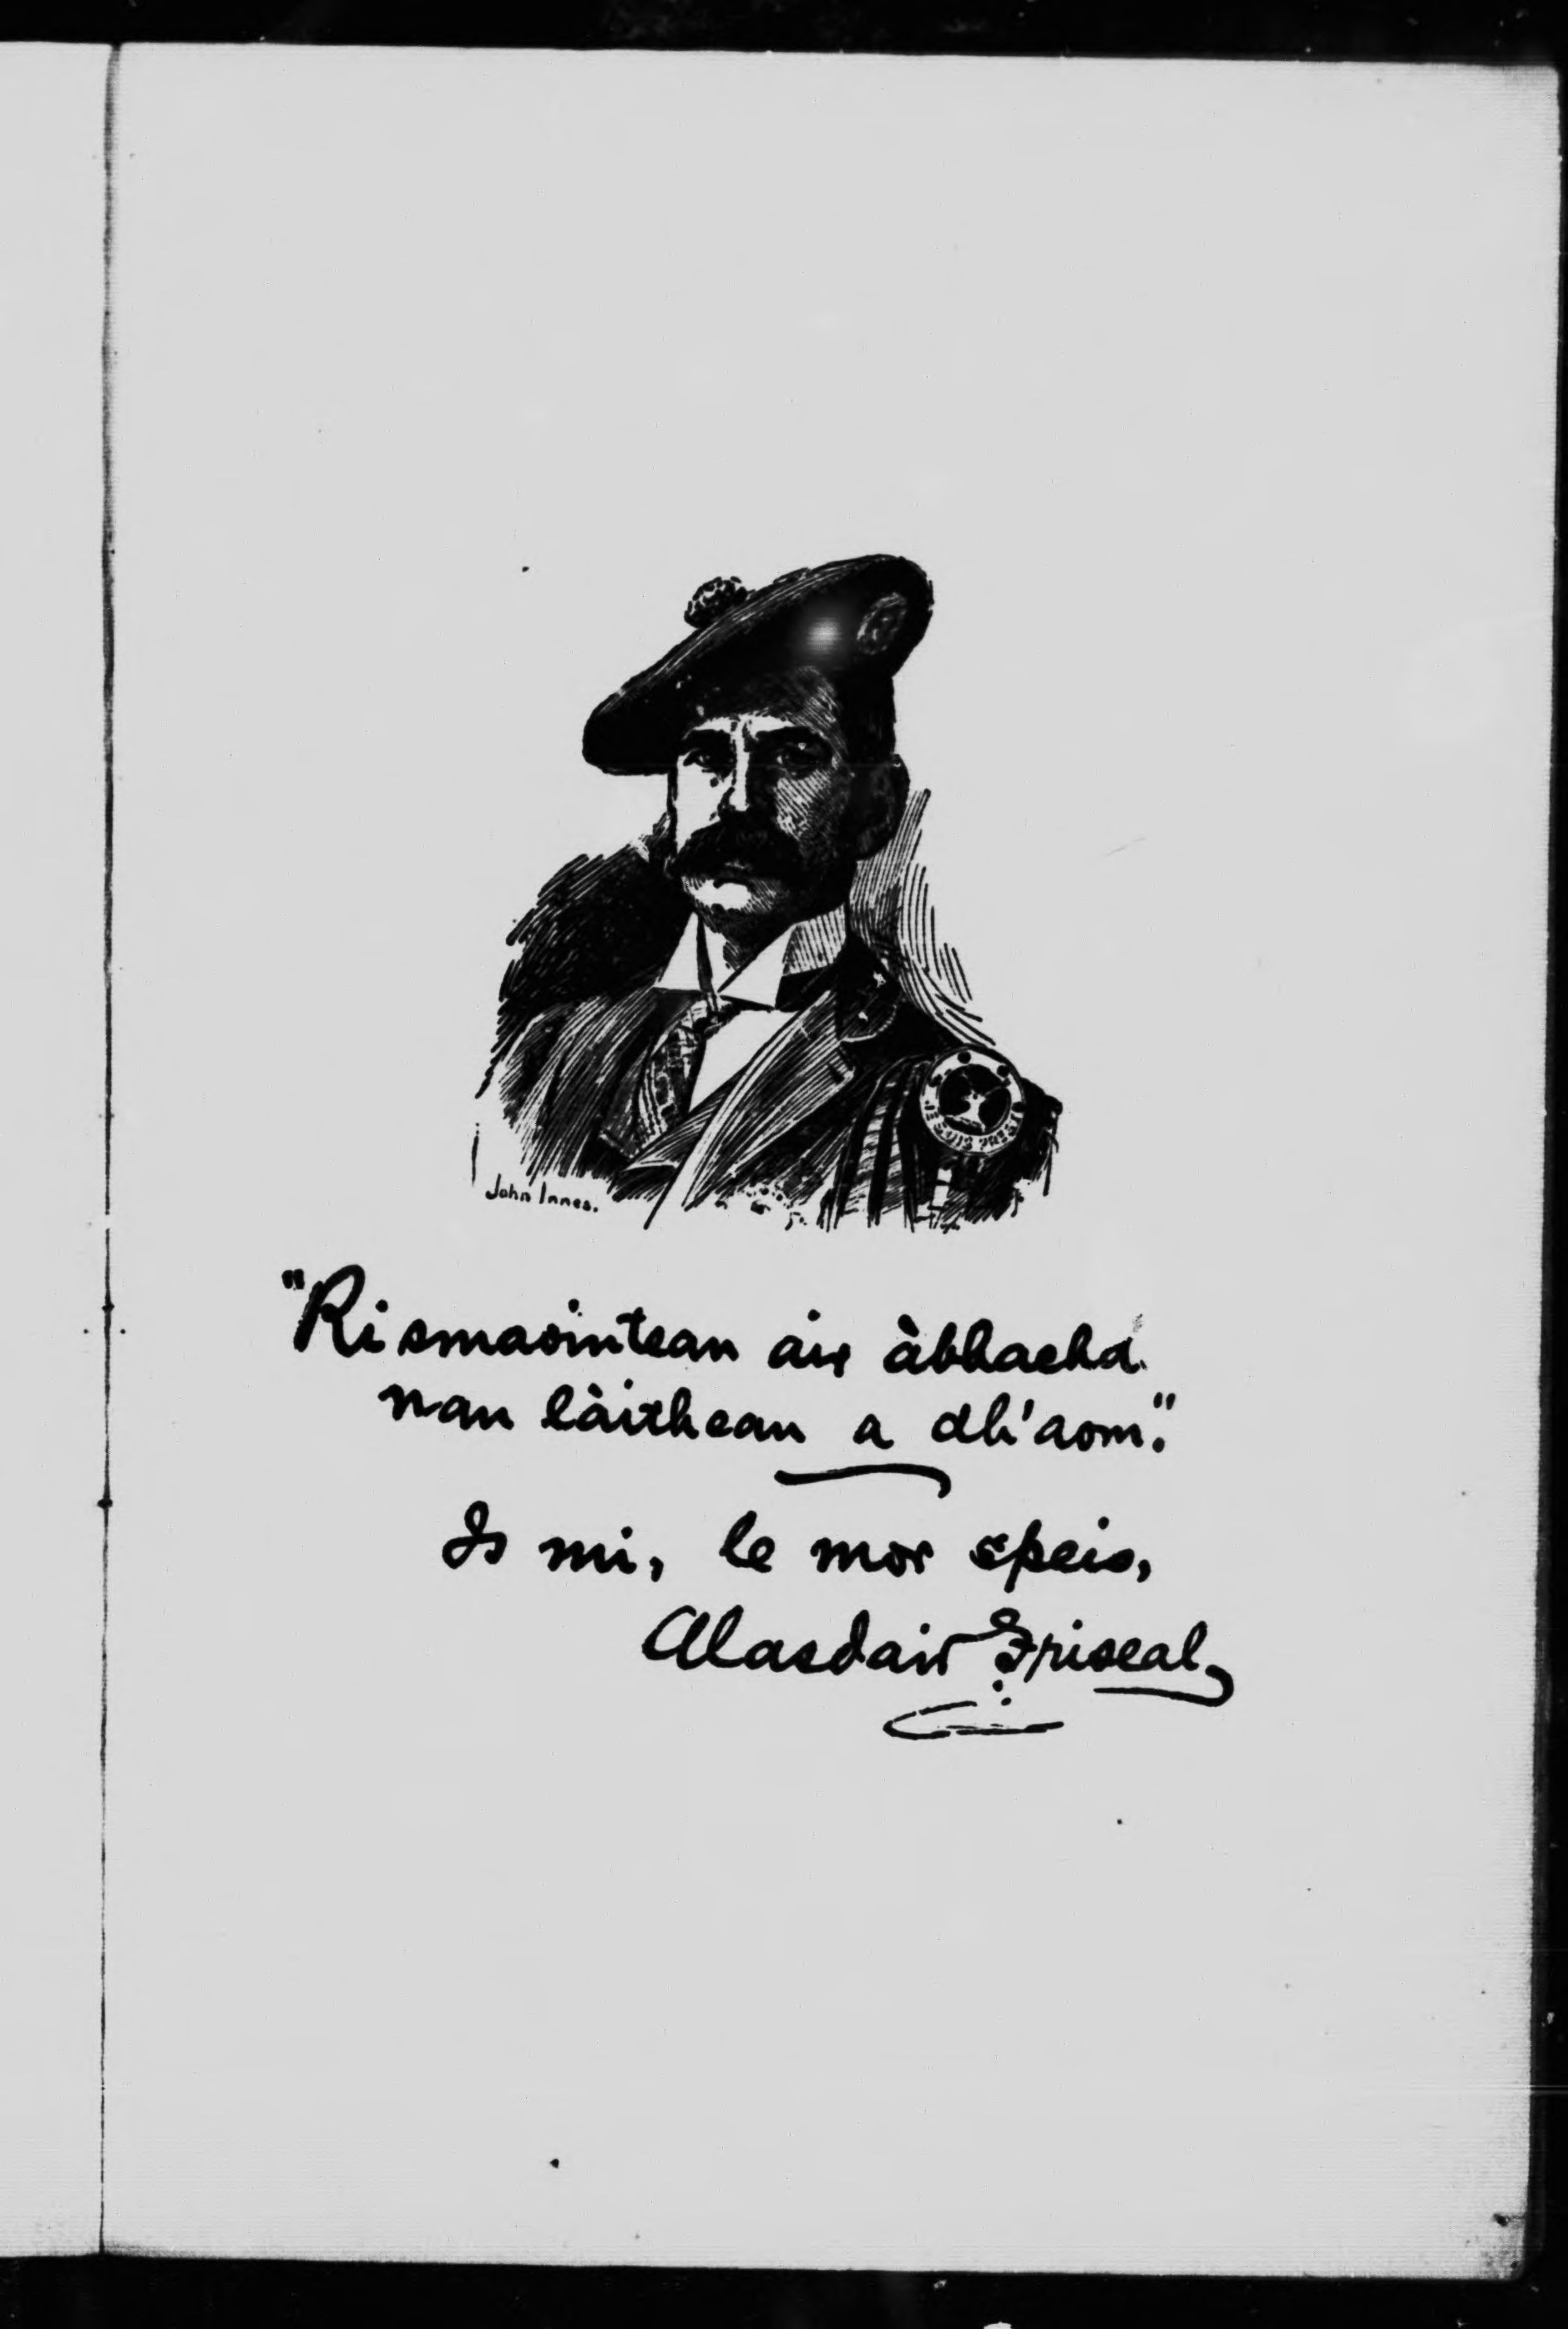 JE SUIS PREST
John Innes.
"Ri smaointean air àbhachd
nan làithean a dh'aom."
Is mi, le mor speis,
Alasdair Friseal